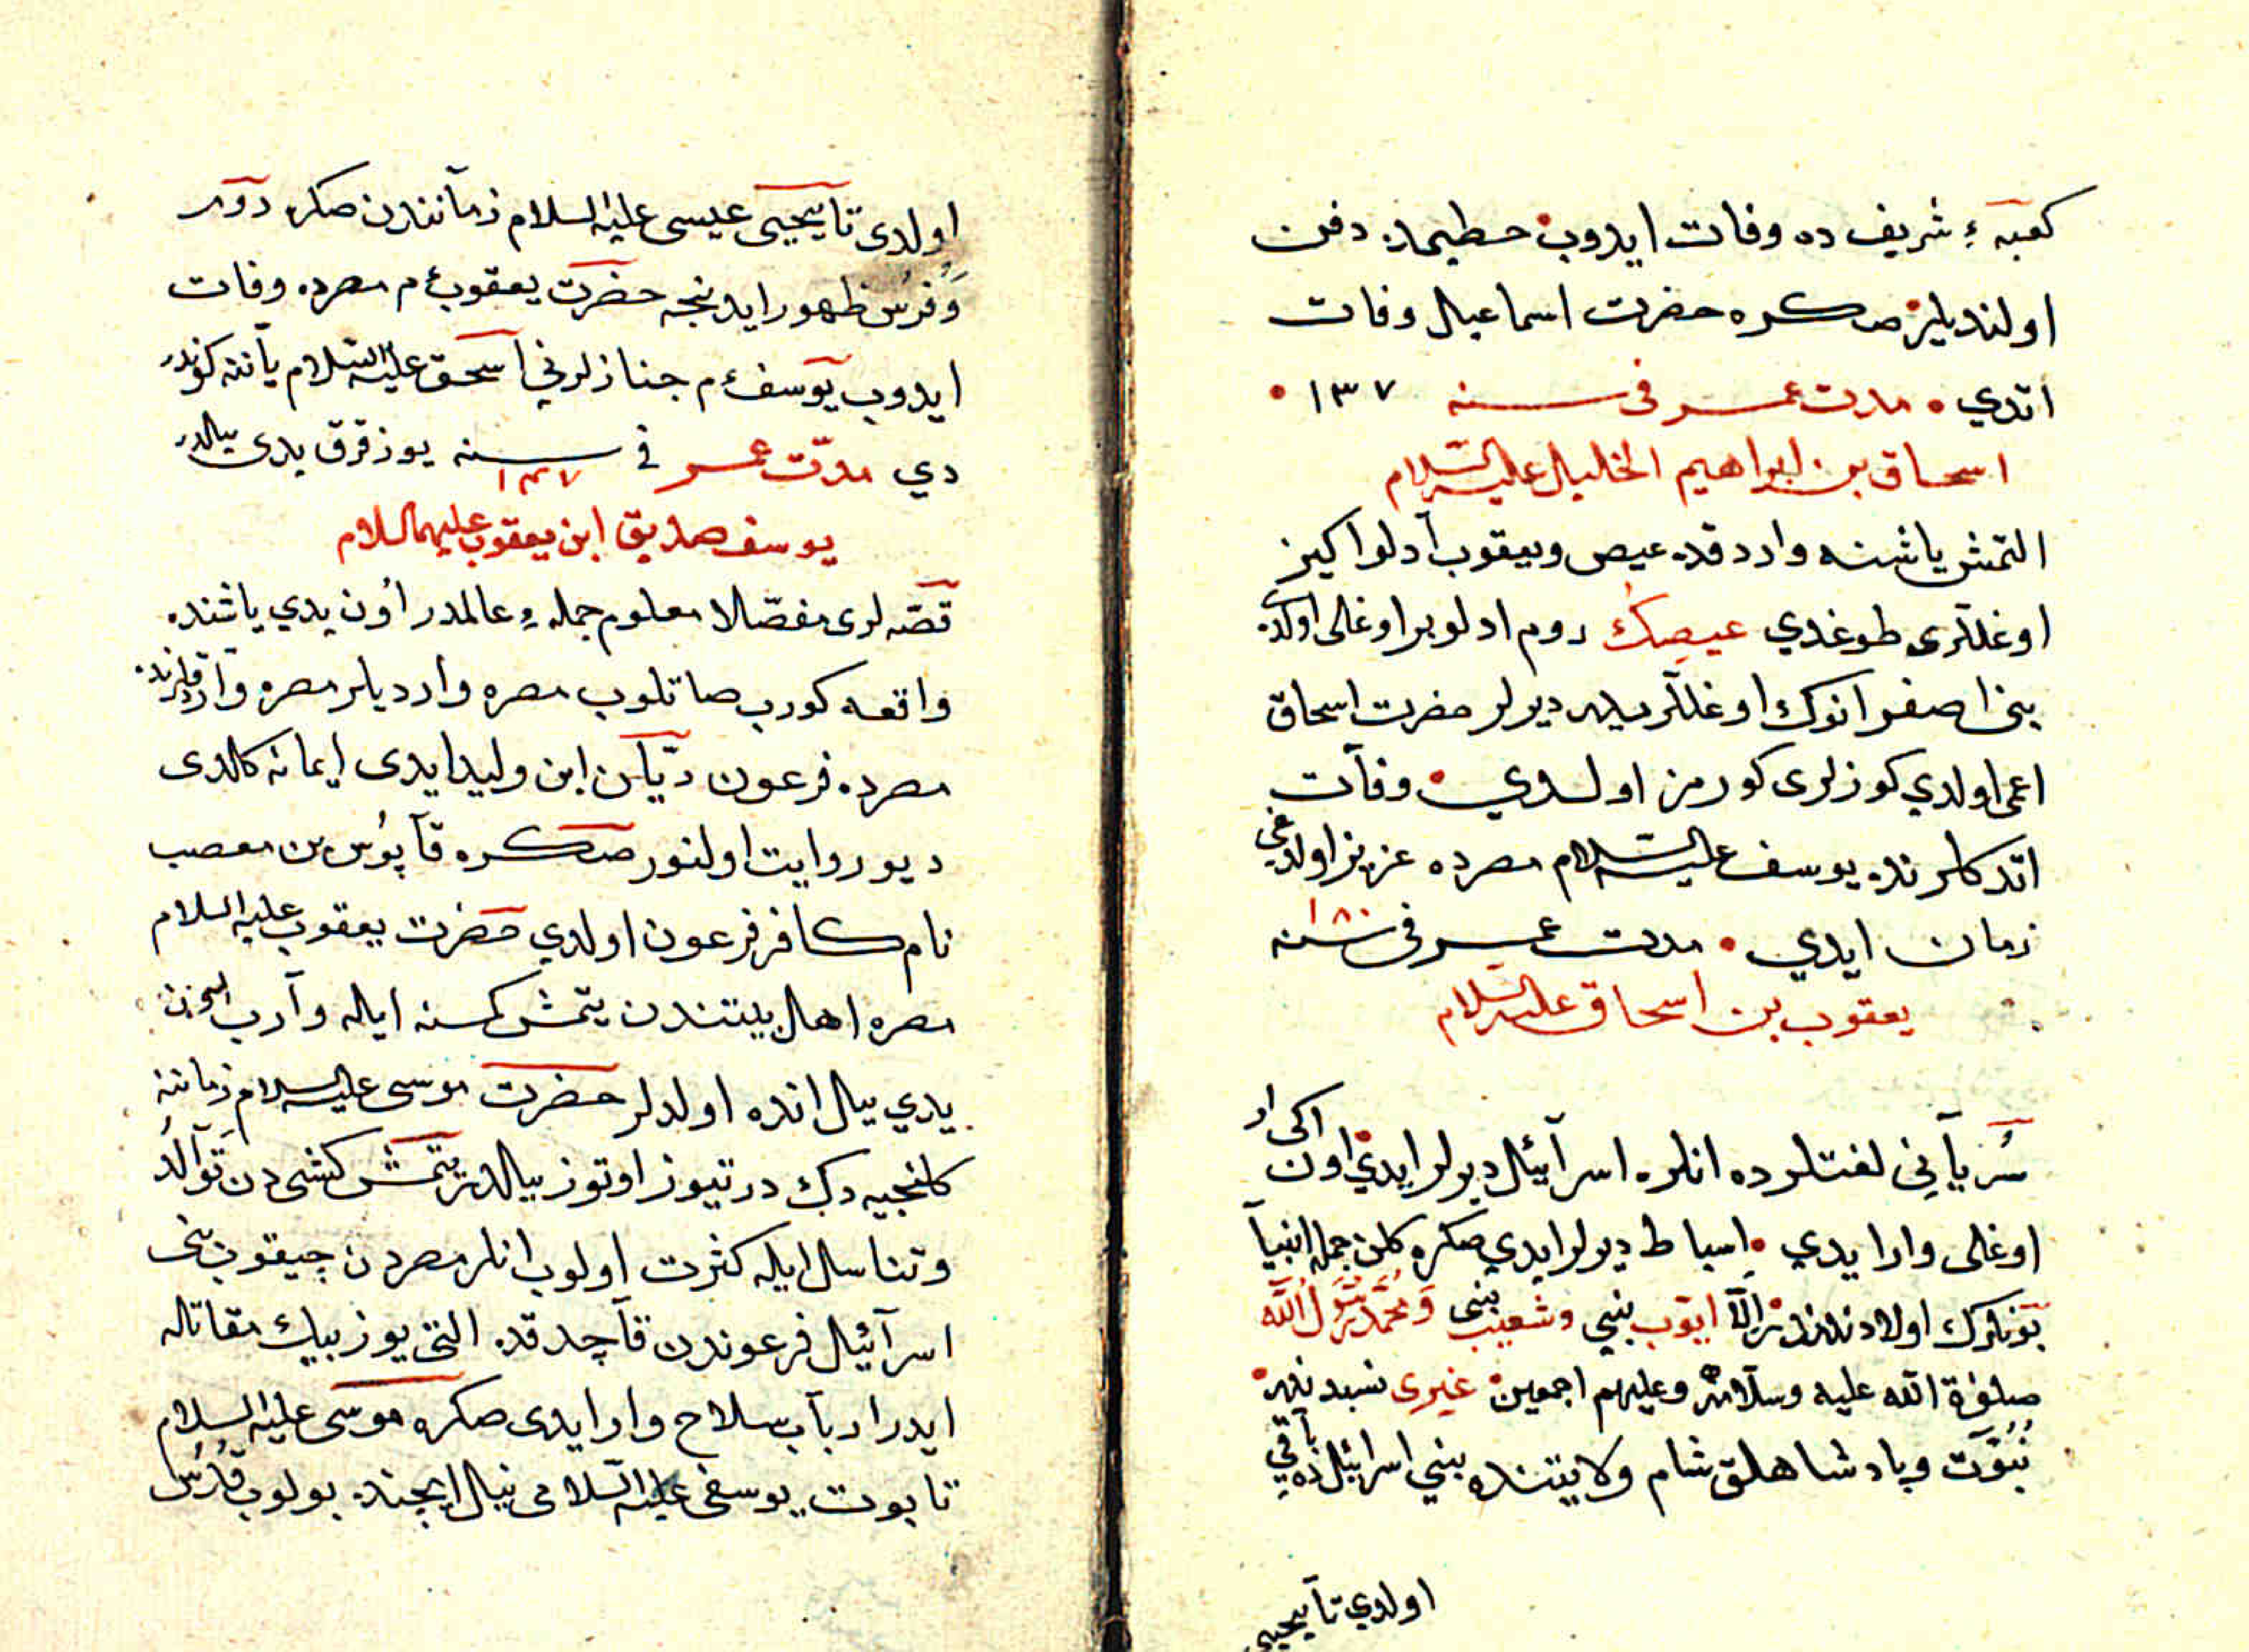 كعبهء شريف ده وفات ايدوب حطيمده دفن
اولنديلر صكره حضرت اسماعيل وفات
اتدي مدت عمر فى سنه ١٣٧
اسحاق بن ابراهيم الخليل عليه السلام
التمش ياشنه واردقده عيص ويعقوب آدلو اكيز
اوغللرى طوغدي عيصك روم ادلو بر اوغلى اولدى
بنى اصفر انوك اوغللريدر ديرلر حضرت اسحاق
اعمى اولدي كوزلرى كورمز اولدي وفات
اتدكلرنده يوسف عليه السلام مصرده عزيز اولدغي
زمان ايدي مدت عمر فى سنه ١٨٠
يعقوب بن اسحاق عليه السلام
سُريآنِي لغتلرده انلره اسرآئيل ديرلر ايدي اون اكى
اوغلى وار ايدي اسباط ديرلر ايدي صكره كلن جمله انبيآ
بونلرك اولادندندر الّا ايّوب نبي وشعيب نبى ومحمّد رسول الله
صلوٰة الله عليه وسلامه وعليهم اجمعين غيرى نسبدندر
نُبُوّت وپادشاهلق شام ولايتنده بني اسرائيلده باقي
اولدي تا يحيى
اولدى تا يحيى عيسى عليه السلام زماننندن صكره دور
وَفُرس ظهور ايدنجه حضرت يعقوب ءم مصرده وفات
ايدوب يوسف ءم جنازلرني اسحق عليه السلام يآننه كوندر
دي مدّت عمر في سنه يوز قرق يدى ييلدر
١٤٧
يوسف صديق ابن يعقوب عليهما السلام
قصّه لرى مفصّلا معلوم جملهء عالمدر اون يدي ياشنده
واقعه كورب صاتلوب مصره وارديلر مصره واردقلرنده
مصرده فرعون ريّان ابن وليد ايدى ايمانه كلدى
ديو روايت اولنور صكره قآبوُس بن مصعب
نام كافر فرعون اولدي حضرت يعقوب عليه السلام
مصره اهل بيتندن يتمش كمسنه ايله وآرب اون
يدي ييل انده اولدلر حضرت موسى عليه السلام زماننه
كلنجيه دك درتيوز اوتوز ييلدر يتمش كشى دن تَوآلُد
وتناسل ايله كثرت اولوب انلر مصردن چيقوب بنى
اسرآئيل فرعوندن قآچدقده التى يوز بيك مقاتله
ايدر اربآب سلاح وار ايدى صكره موسى عليه السلام
تابوت يوسفى عليه السلامى نيل ايچنده بولوب قُدُس